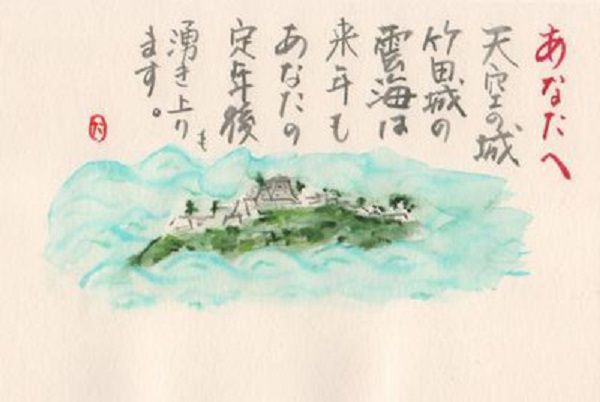 あなたへ
天空の城
竹田城の
雲海は
来年も
あなたの
定年後も
湧き上り
ます。